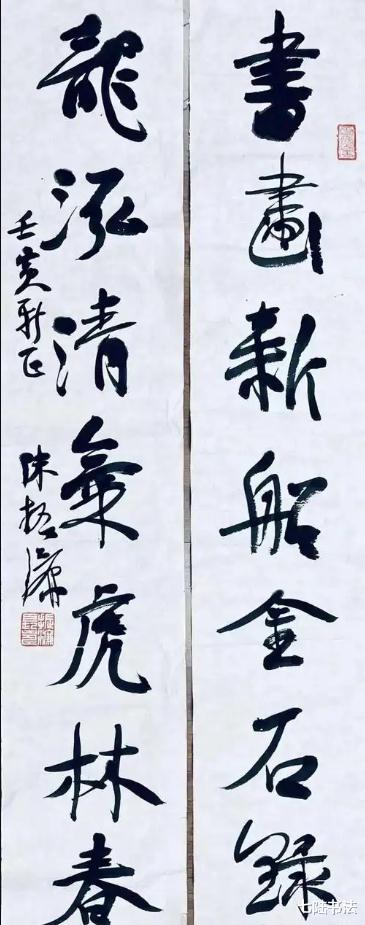 書畫新船金石錄
龍泓清氣虎林春
壬寅新正
陳振濂
七陆书法